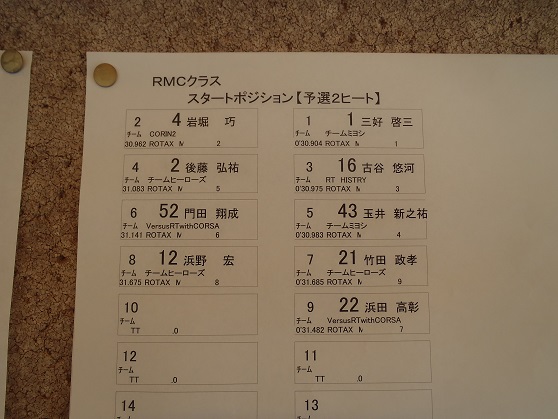 RMCクラス
スタートポジション【予選2ヒート】
2 4 岩堀 巧
チーム CORIN2
30.962 ROTAX M 2
1 1 三好 啓三
チーム チームミヨシ
0'30.904 ROTAX M 1
4 2 後藤 弘祐
チーム チームヒーローズ
31.083 ROTAX M 5
3 16 古谷 悠河
チーム RT HISTRY
0'30.975 ROTAX M 3
6 52 門田 翔成
チーム VersusRTwithCORSA
31.141 ROTAX M 6
5 43 玉井 新之祐
チーム チームミヨシ
0'30.983 ROTAX M 4
8 12 浜野 宏
チーム チームヒーローズ
31.675 ROTAX M 8
7 21 竹田 政孝
チーム チームヒーローズ
0'31.685 ROTAX M 9
10
チーム
TT .0
9 22 浜田 高彰
チーム VersusRTwithCORSA
0'31.482 ROTAX M 7
12
チーム
TT .0
11
チーム
TT .0
14
13